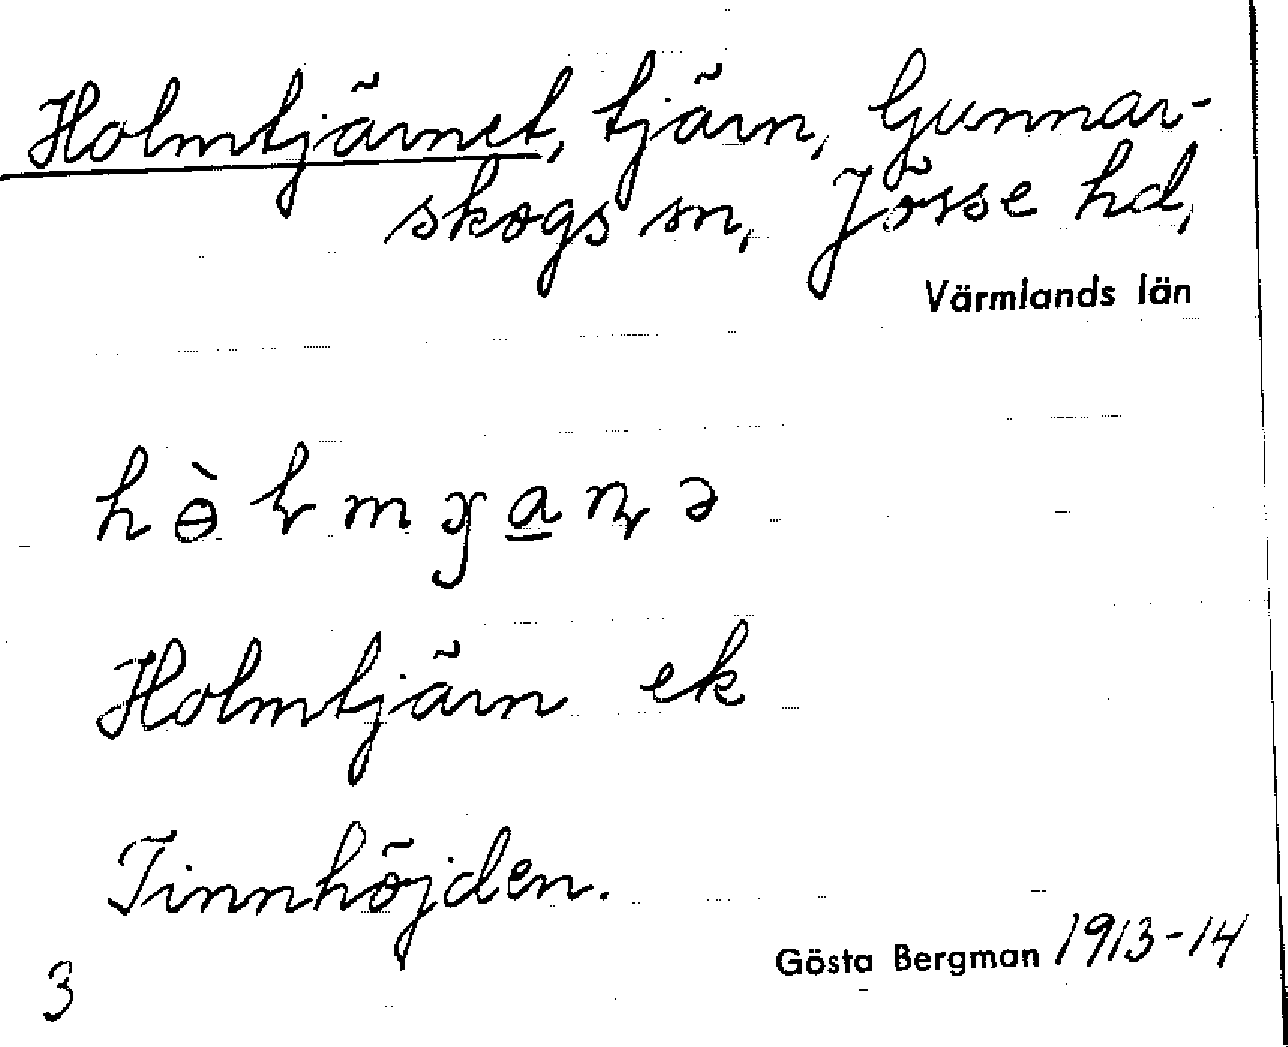 Holmtjärnet, tjärn, Gunnar-
skogs sn, Jösse hd,
Värmlands län
Holmtjärn ek
Tinnhöjden.
3 Gösta Bergman 1913-14